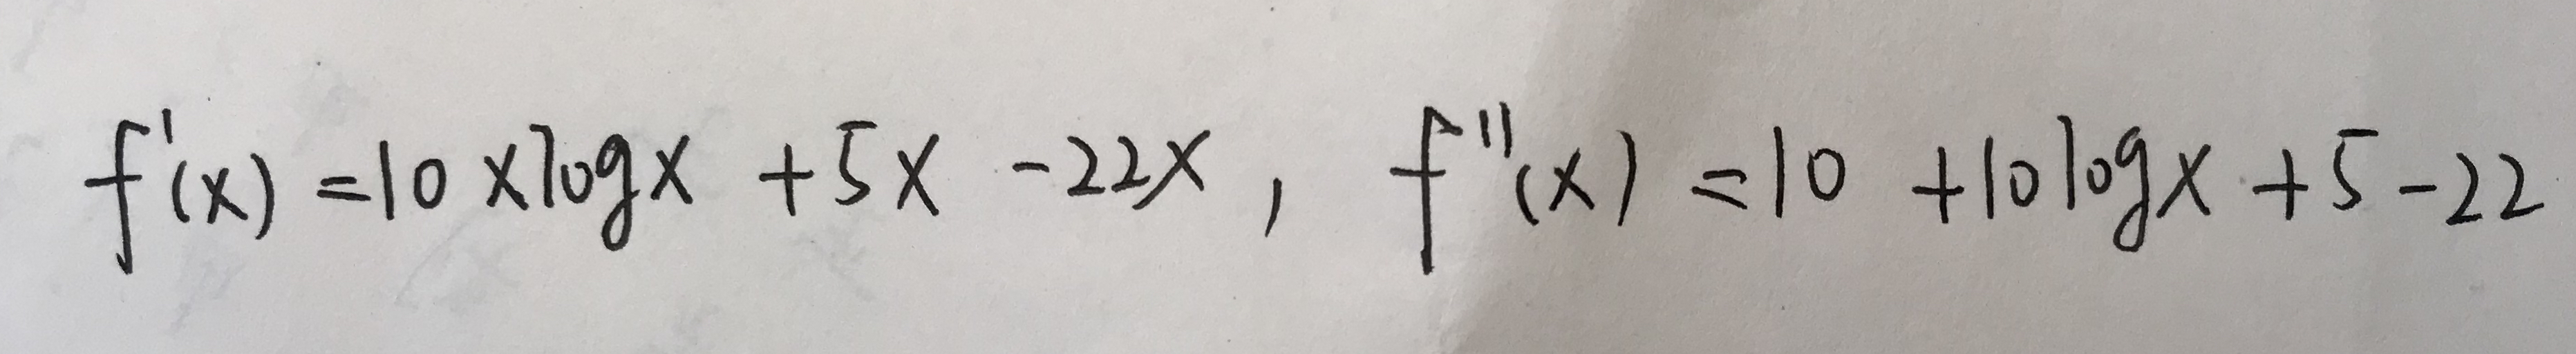 f'(x) = 10 x log x + 5x - 22x, f''(x) = 10 + 10 log x + 5 - 22